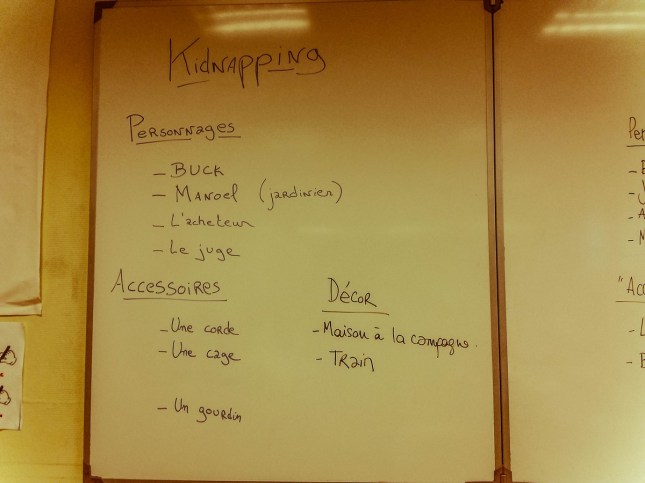 Kidnapping
Personnages
- Buck
- Manoel (jardinier)
- L'acheteur
- Le juge
Accessoires
- Une corde
- Une cage
- Un gourdin
Décor
- Maison à la campagne.
- Train
"Acc